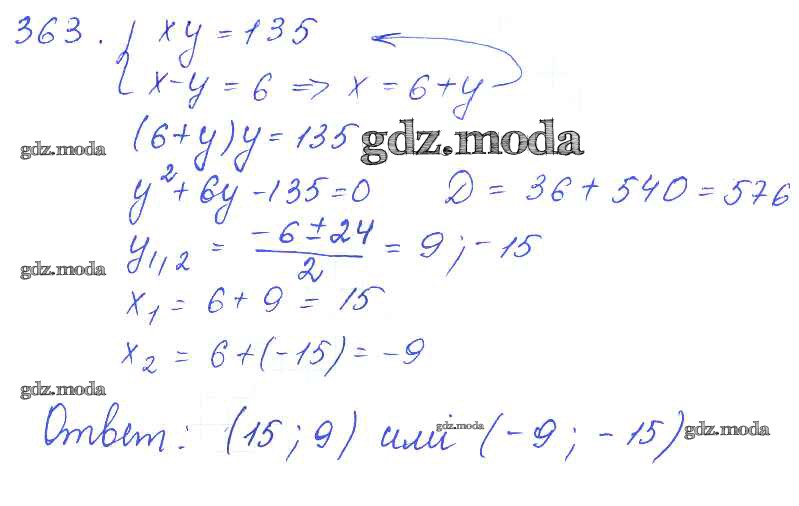 363. { xy = 135
x-y = 6 => x = 6+y
gdz.moda (6+y)y = 135 gdz.moda
y² + 6y - 135 = 0 D = 36 + 540 = 576
gdz.moda y₁,₂ = (-6 ± 24)/2 = 9; -15
x₁ = 6 + 9 = 15
x₂ = 6 + (-15) = -9
gdz.moda
Ответ: (15; 9) или gdz.moda (-9; -15) gdz.moda